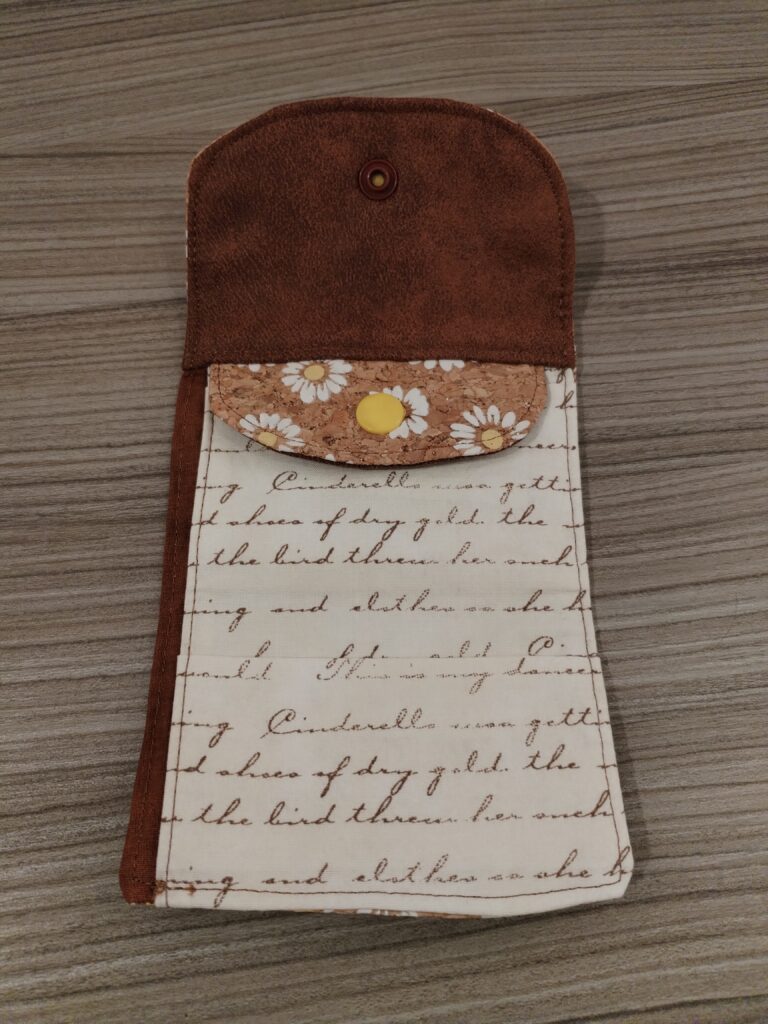 Cinderella was getti
d shoes of dry gold. the
the bird threw her such
ing and clothes so she h
would This is my dancer
ing Cinderella was getti
d shoes of dry gold. the
the bird threw her such
ing and clothes so she h